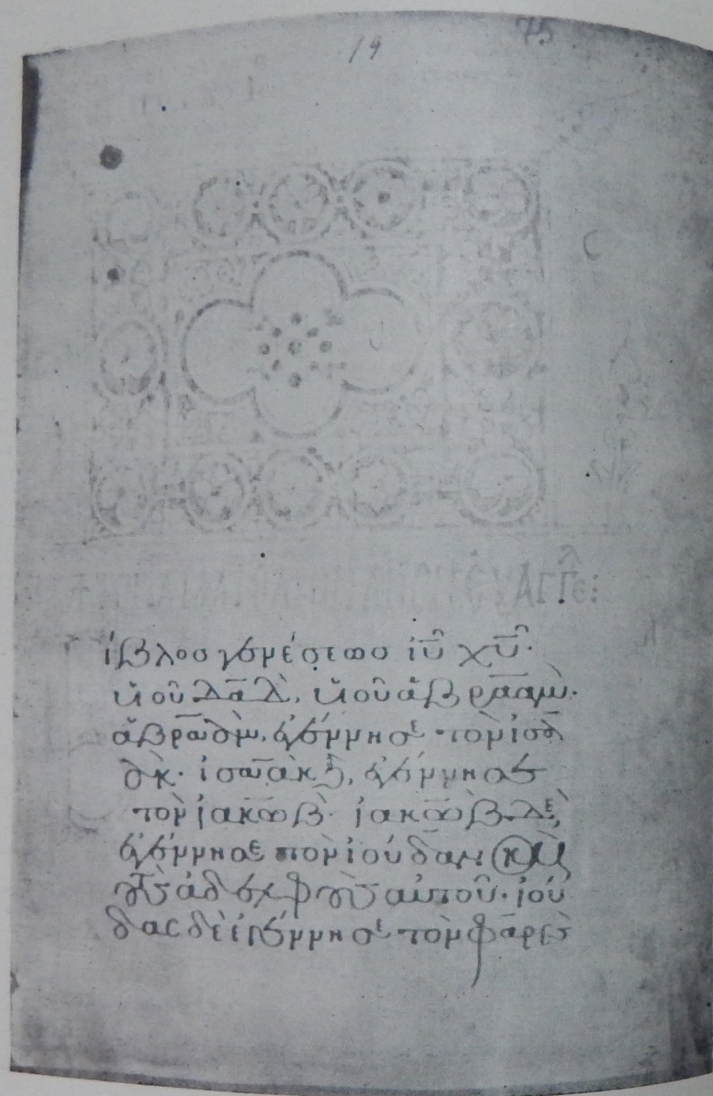 19 75
ΕΥΑΓΓΕΛ:
ίβλος γενέσεως ἰῦ χῦ·
υἱοῦ δαδ, υἱοῦ ἀβραάμ·
ἀβραὰμ, ἐγέννησε τὸν ἰσα
ὰκ· ἰσαὰκ δὲ, ἐγέννησε
τὸν ἰακώβ· ἰακὼβ δὲ,
ἐγέννησε τὸν ἰούδαν καὶ
τοὺς ἀδελφοὺς αὐτοῦ· ἰού
δας δὲ ἐγέννησε τὸν φαρὲς